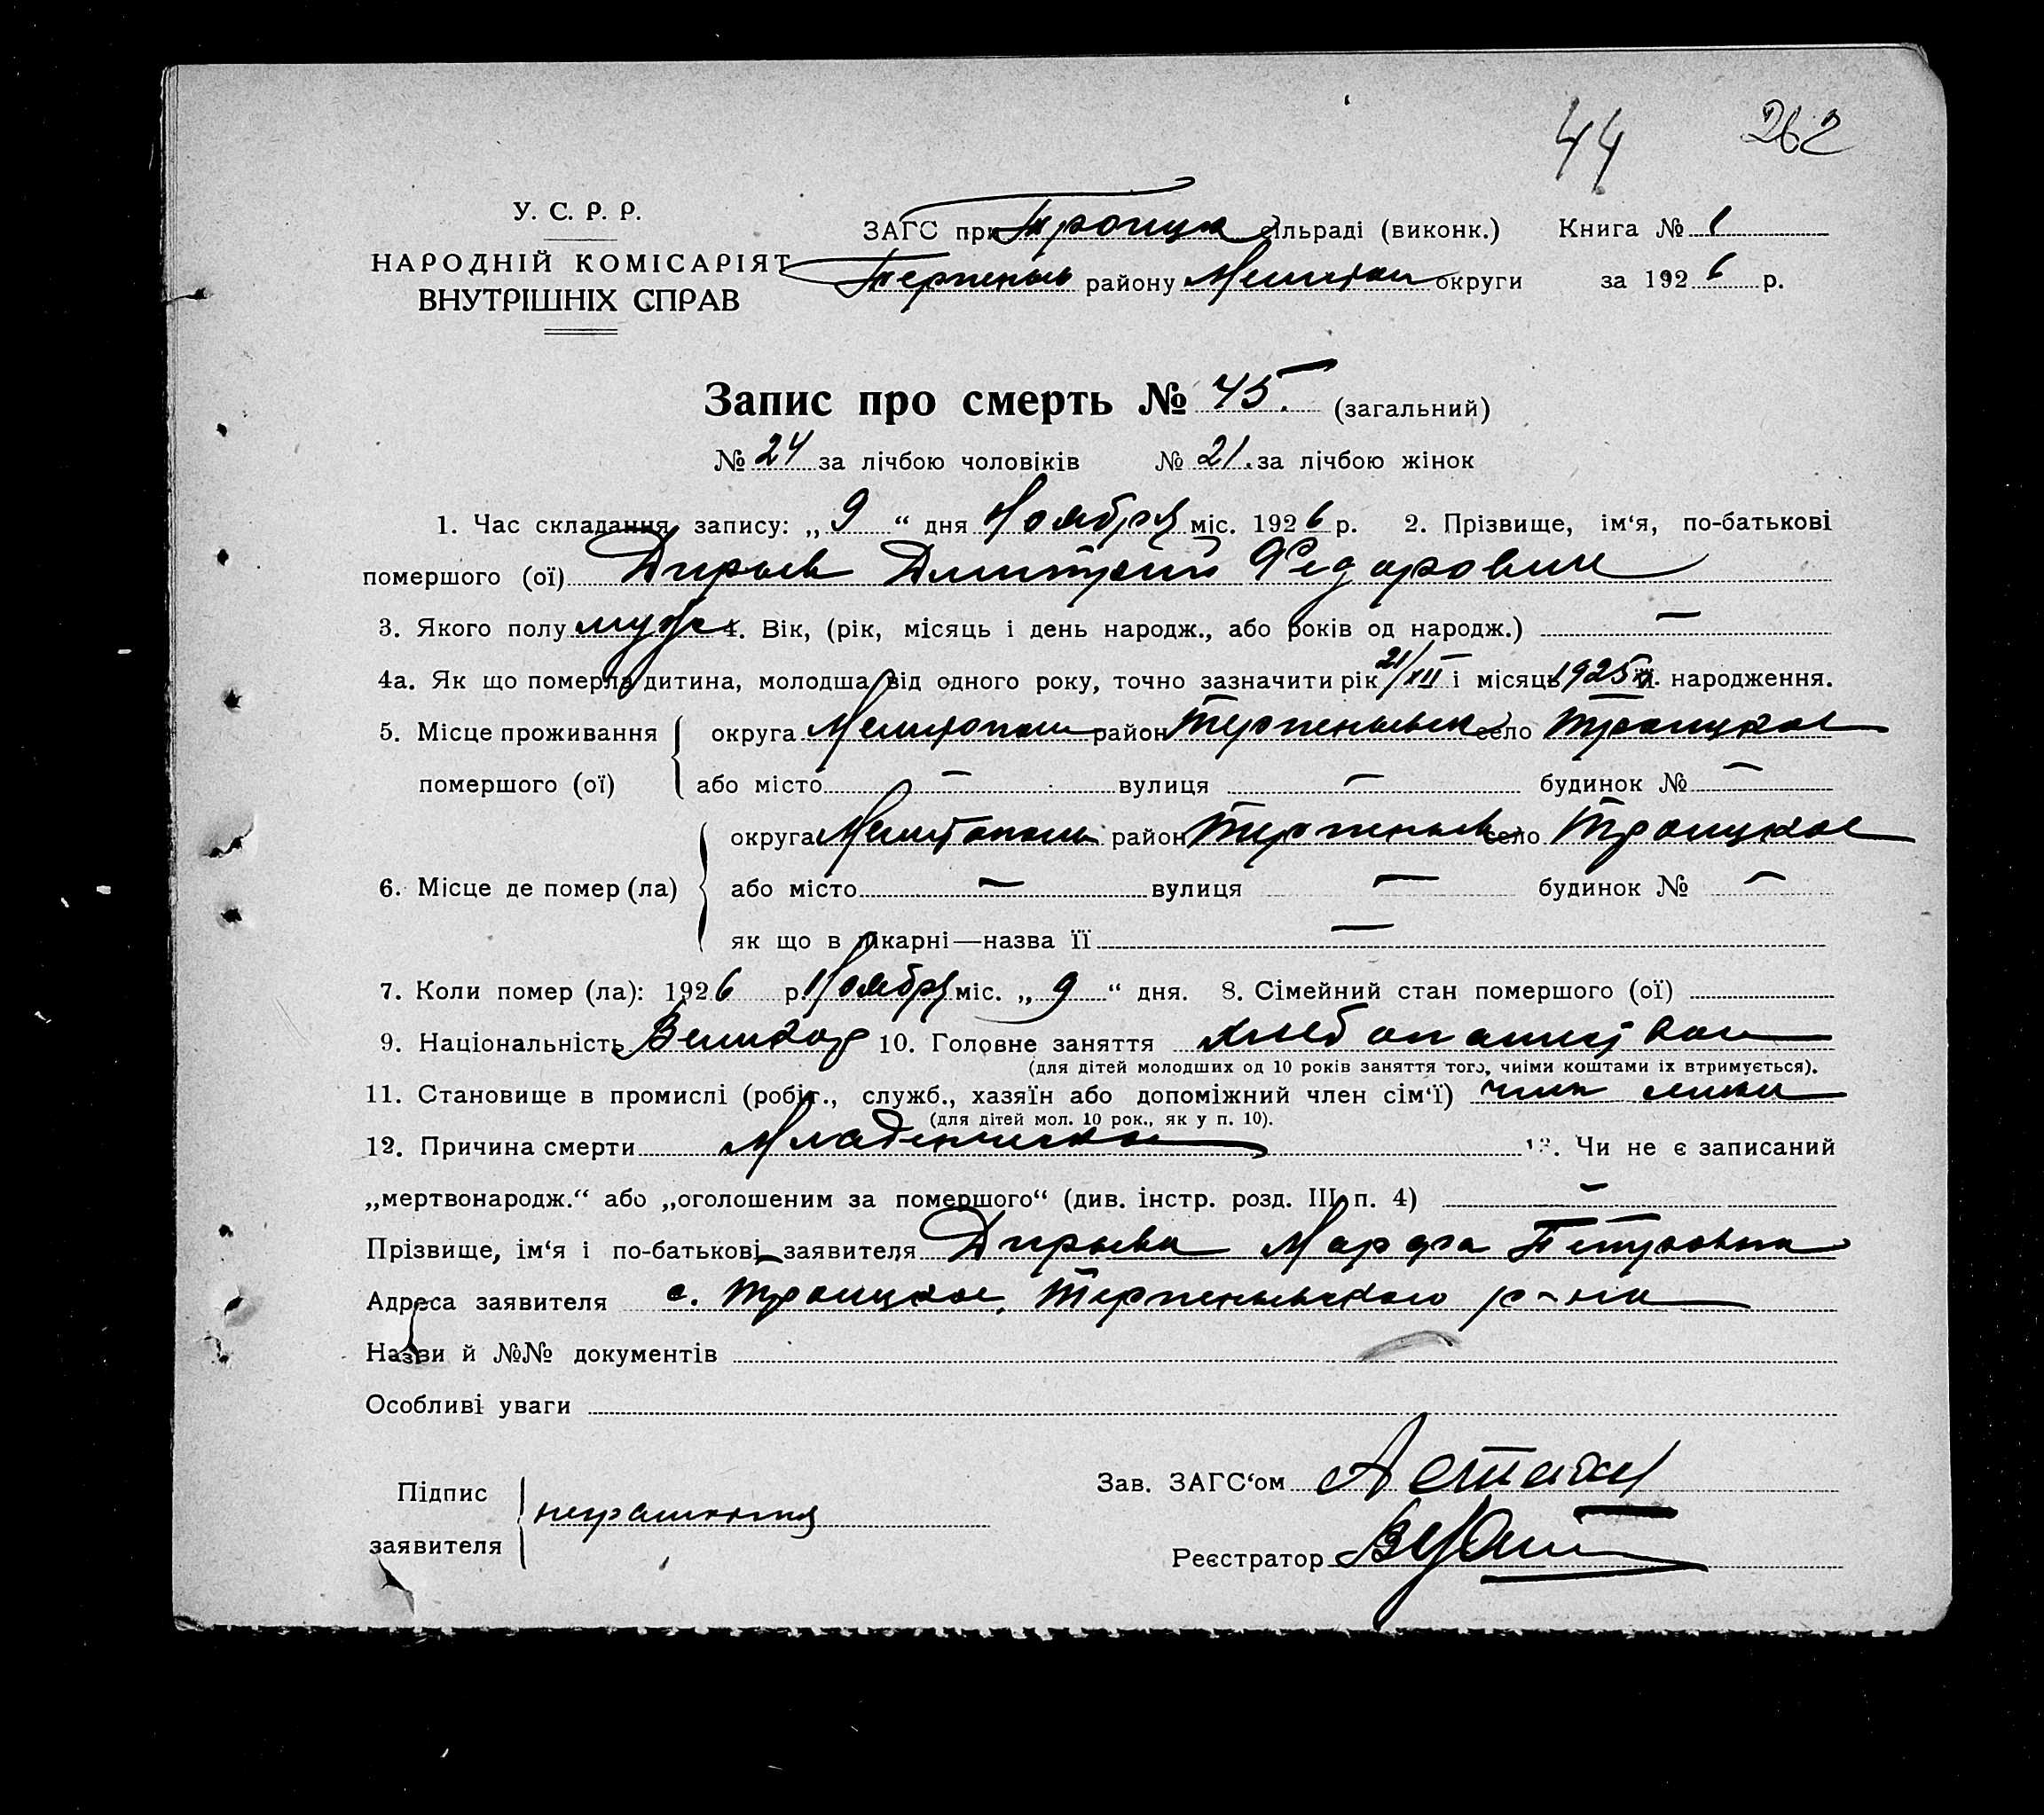 44 262
У. С. Р. Р.
НАРОДНІЙ КОМІСАРІЯТ
ВНУТРІШНІХ СПРАВ
ЗАГС при Троицк сільраді (виконк.) Книга № 1
району округи за 1926 р.
Запис про смерть № 45. (загальний)
№ 24 за лічбою чоловіків № 21. за лічбою жінок
1. Час складання запису: „ 9 “ дня Ноября міс. 1926 р. 2. Прізвище, ім‘я, по-батькові
помершого (ої) Дмитрий Федорович
3. Якого полу муж 4. Вік, (рік, місяць і день народж., або років од народж.) —
4а. Як що померла дитина, молодша від одного року, точно зазначити рік 21/XII і місяць 1925 народження.
5. Місце проживання округа Мелитопол район село Троицкое
помершого (ої) або місто — вулиця — будинок № —
округа Мелитополь район село Троицкое
6. Місце де помер (ла) або місто — вулиця — будинок № —
як що в лікарні—назва її —
7. Коли помер (ла): 1926 р. Ноября міс. „ 9 “ дня. 8. Сімейний стан помершого (ої)
9. Національність Великор 10. Головне заняття
(для дітей молодших од 10 років заняття того, чиїми коштами їх втримується).
11. Становище в промислі (робіт., служб., хазяїн або допоміжний член сім‘ї) член
(для дітей мол. 10 рок., як у п. 10).
12. Причина смерти Младенческая 13. Чи не є записаний
„мертвонародж.“ або „оголошеним за помершого“ (див. інстр. розд. III п. 4) —
Прізвище, ім‘я і по-батькові заявителя Марфа Петровна
Адреса заявителя с. Троицкое, Терпеньевского р-на
Назви й №№ документів
Особливі уваги
Підпис
заявителя неграмотная
Зав. ЗАГС‘ом
Реєстратор